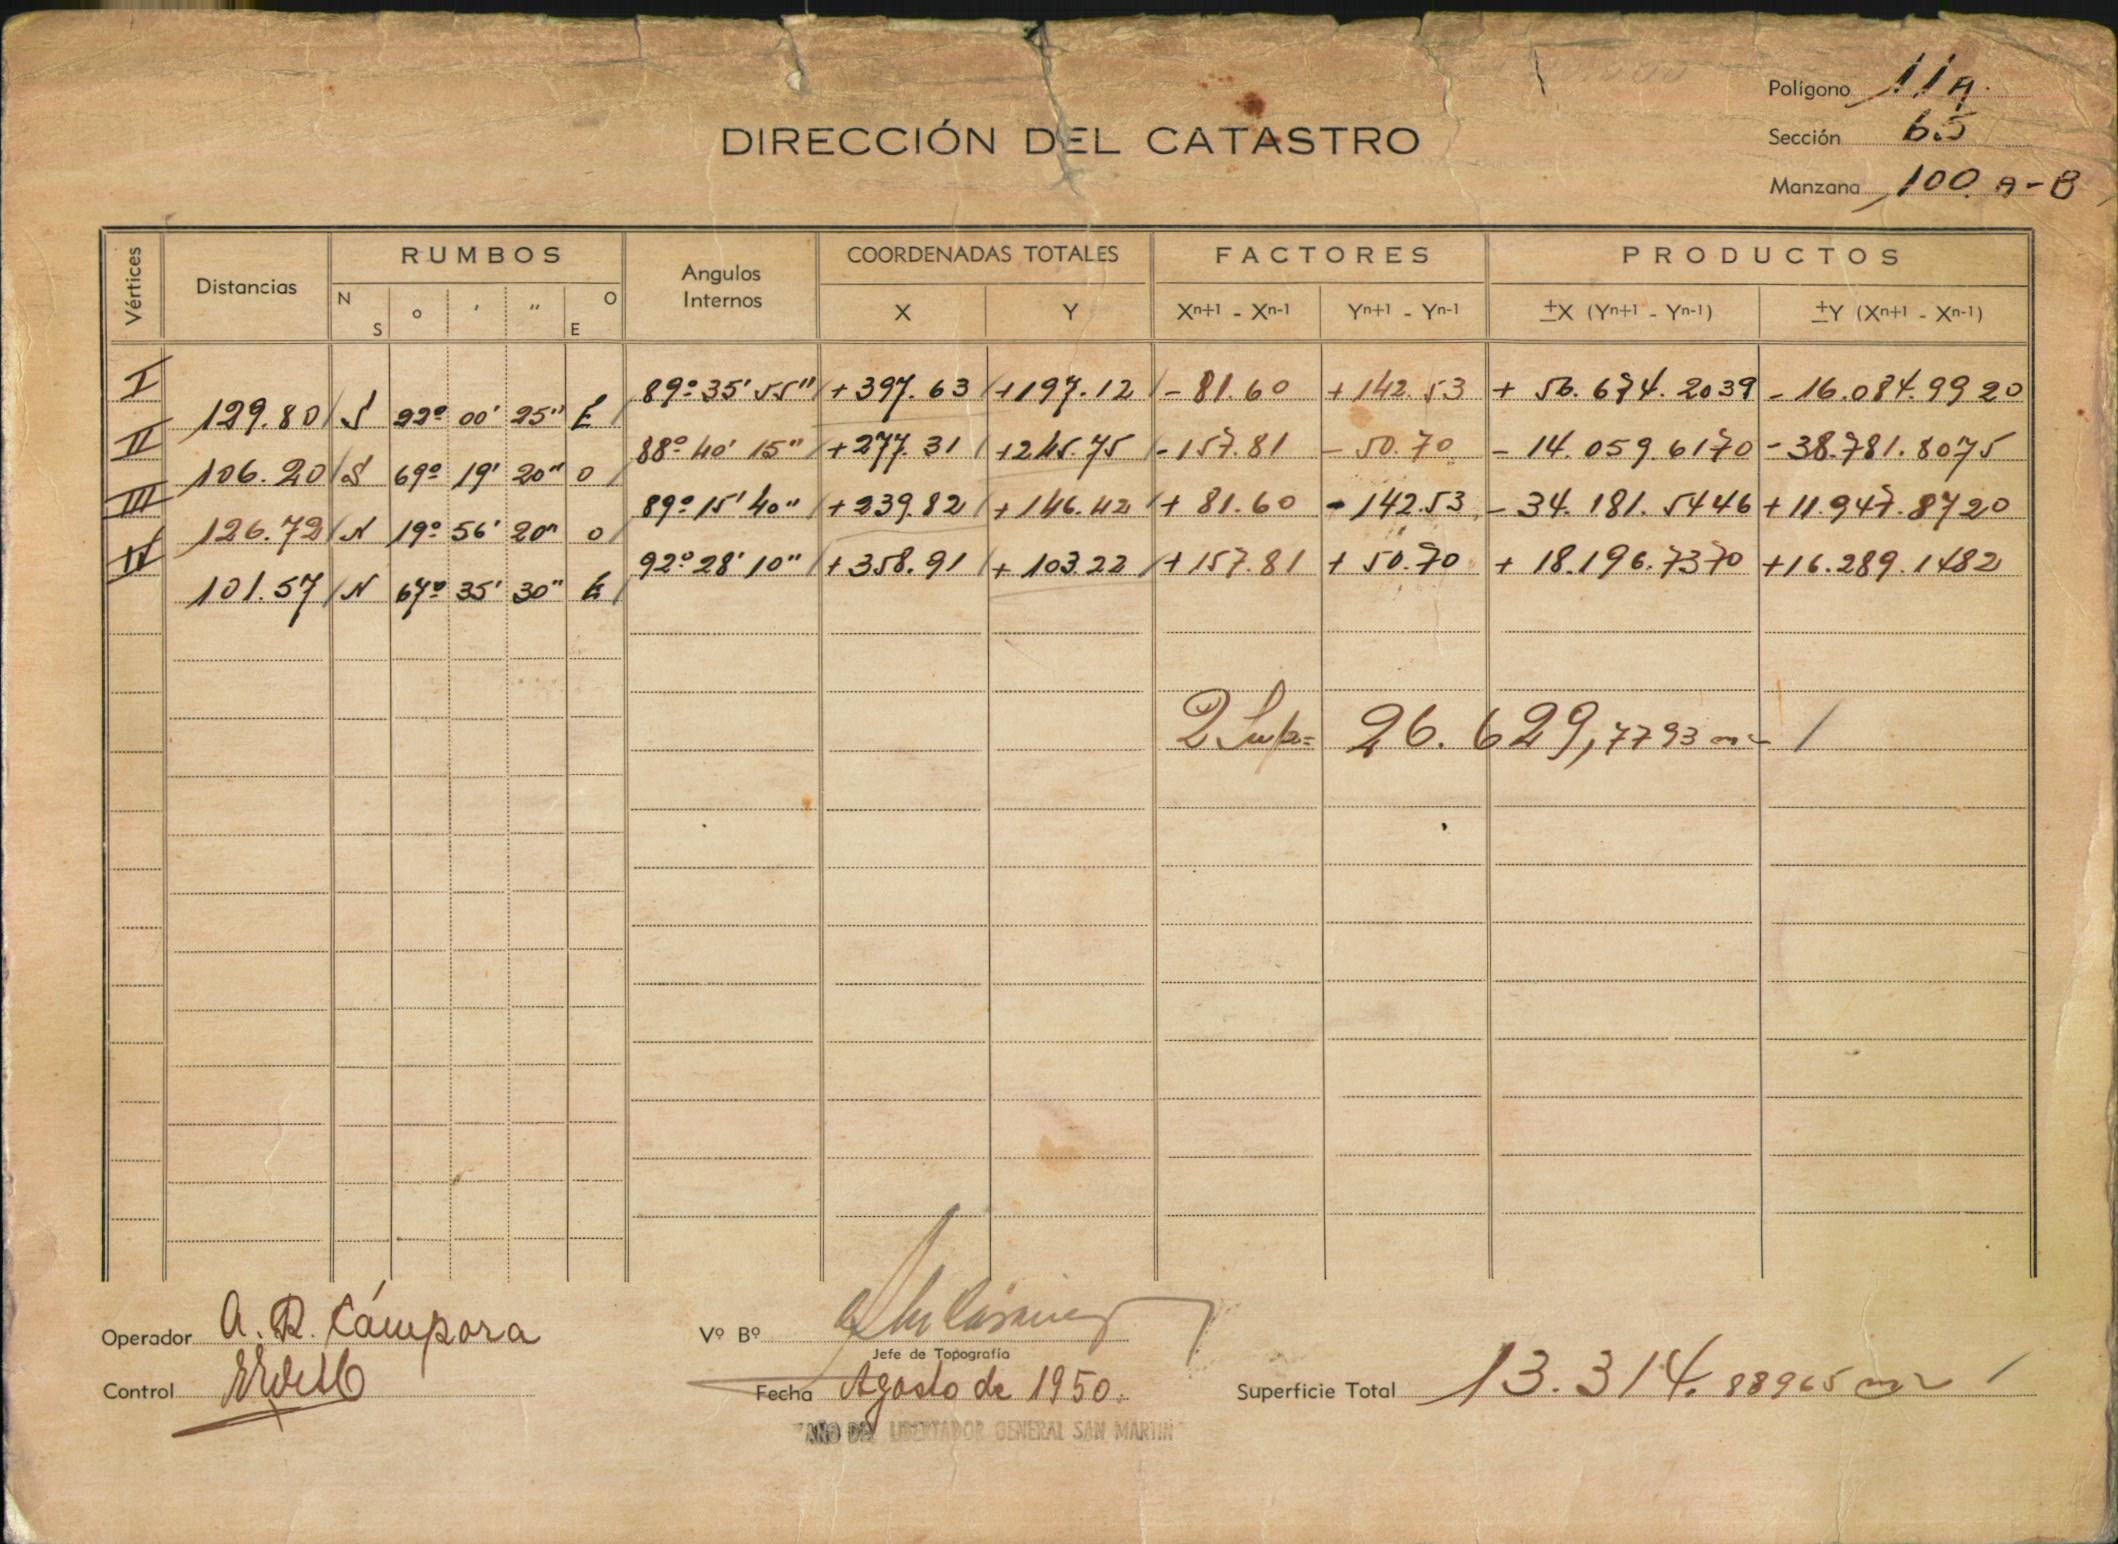 Polígono 11A.
Sección 65
Manzana 100 A-B
DIRECCIÓN DEL CATASTRO
Vértices Distancias RUMBOS Angulos Internos COORDENADAS TOTALES FACTORES PRODUCTOS
N S o ' " O E X Y Xn+1 - Xn-1 Yn+1 - Yn-1 ±X (Yn+1 - Yn-1) ±Y (Xn+1 - Xn-1)
I 89º 35' 55" +397.63 +197.12 -81.60 +142.53 +56.674.2039 -16.084.9920
129.80 S 22º 00' 25" E
II 88º 40' 15" +277.31 +245.75 -157.81 -50.70 -14.059.6170 -38.781.8075
106.20 S 69º 19' 20" O
III 89º 15' 40" +239.82 +146.42 +81.60 -142.53 -34.181.5446 +11.947.8720
126.72 N 19º 56' 20" O
IV 92º 28' 10" +358.91 +103.22 +157.81 +50.70 +18.196.7370 +16.289.1482
101.57 N 67º 35' 30" E
2 Sup= 26.629,7793 m2
Operador A. R. Cámpora
Vº Bº
Jefe de Topografía
Control
Fecha Agosto de 1950.
Superficie Total 13.314.88965 m2
"AÑO DEL LIBERTADOR GENERAL SAN MARTIN"